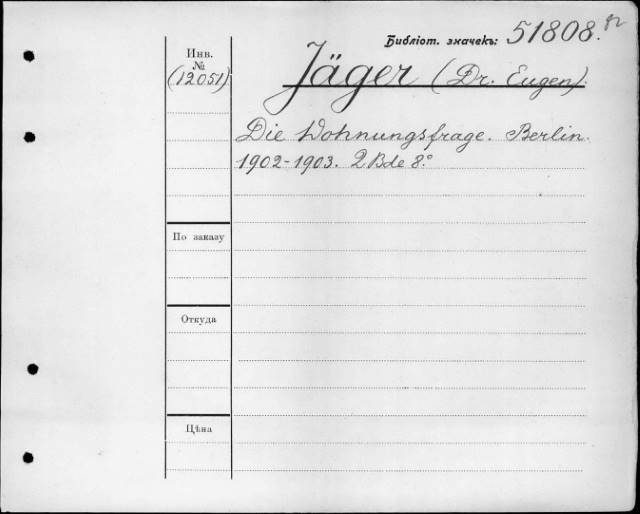 Библіот. значекъ: 51808.
Инв.
№
(12051)
Jäger (Dr. Eugen).
Die Wohnungsfrage. Berlin.
1902-1903. 2 Bde 8.°
По заказу
Откуда
Цѣна